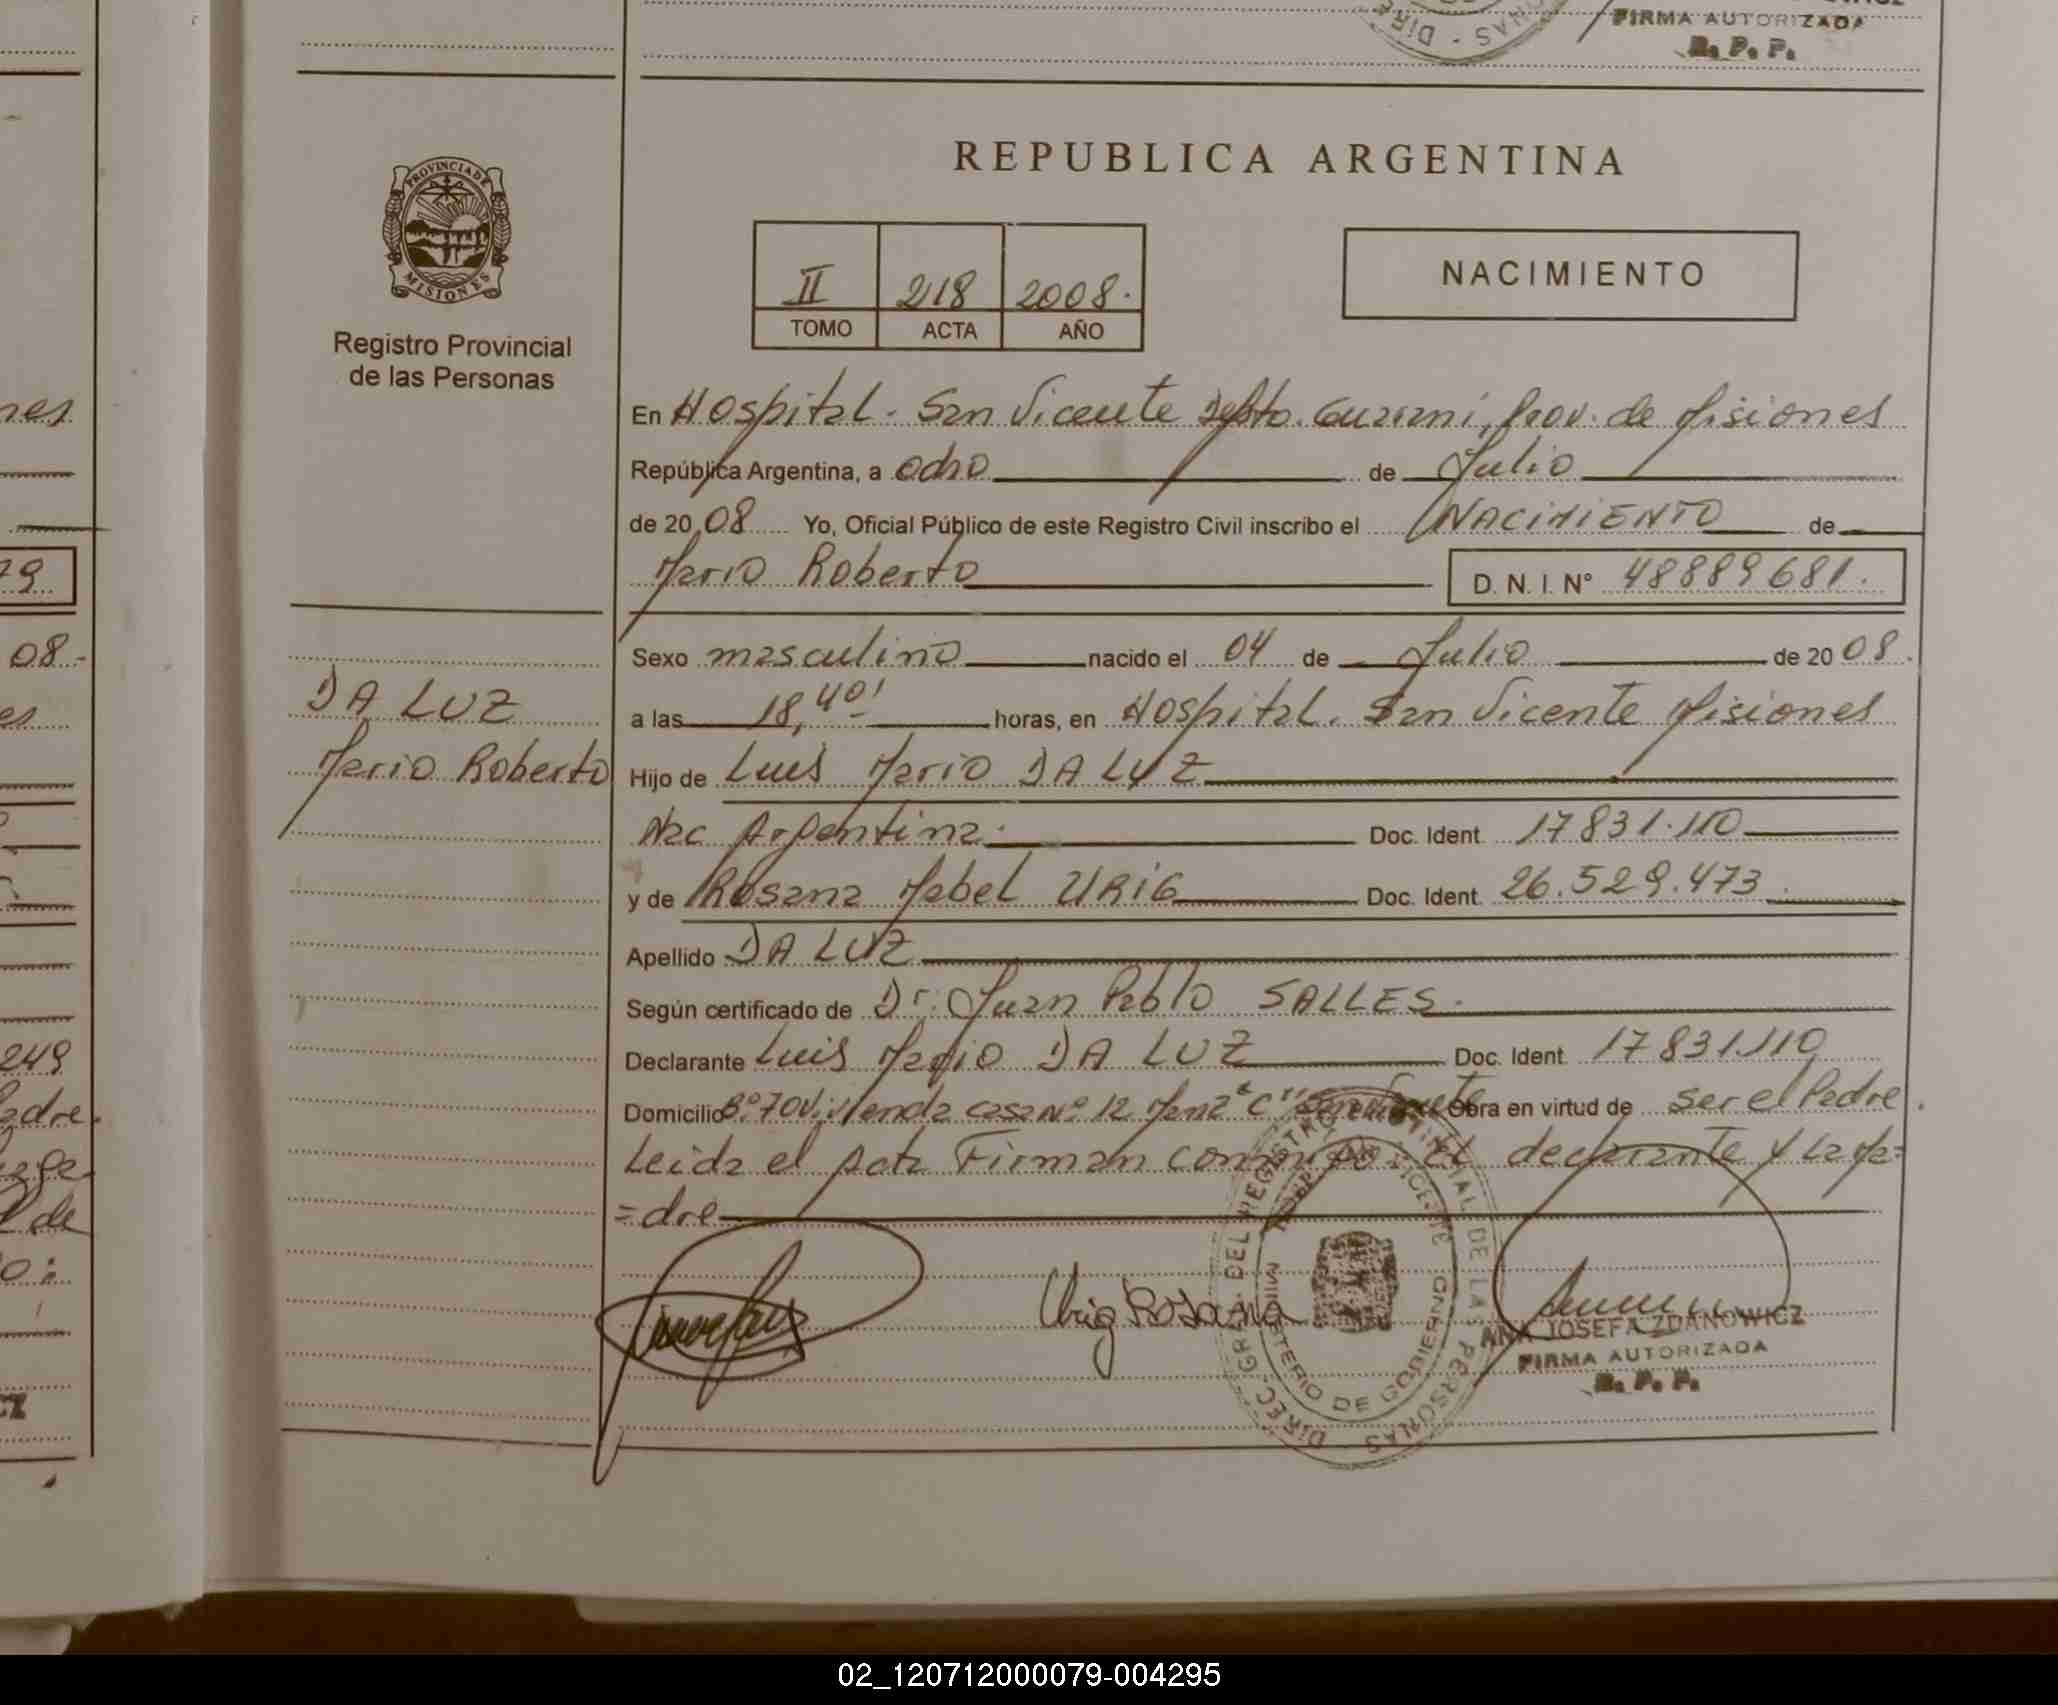 FIRMA AUTORIZADA
R. P. P.
PROVINCIA DE
MISIONES
Registro Provincial
de las Personas
REPUBLICA ARGENTINA
II 218 2008.
TOMO ACTA AÑO
NACIMIENTO
En Hospital. San Vicente Depto. Guarani, Prov. de Misiones
República Argentina, a ocho de Julio
de 2008 Yo, Oficial Público de este Registro Civil inscribo el NACIMIENTO de
Mario Roberto D. N. I. N° 48889681.
Sexo masculino nacido el 04 de Julio de 2008.
DA LUZ
a las 18,40' horas, en Hospital. San Vicente Misiones
Mario Roberto
Hijo de Luis Mario DA LUZ
Nac Argentina. Doc. Ident. 17831.110
y de Rosana Mabel URIG Doc. Ident. 26.529.473
Apellido DA LUZ
Según certificado de Dr: Juan Pablo SALLES.
Declarante Luis Mario DA LUZ Doc. Ident. 17831.110
Domicilio B° 70 Vivienda casa N° 12 Manz "C" San Vicente Obra en virtud de ser el Padre.
Leida el acta Firman conmigo: El declarante y la Ma=
=dre
Urig Rosana
DIREC. GRAL. DEL REGISTRO PROVINCIAL DE LAS PERSONAS
MINISTERIO DE GOBIERNO
ANA JOSEFA ZDANOWICZ
FIRMA AUTORIZADA
R. P. P.
249
08-
02_120712000079-004295